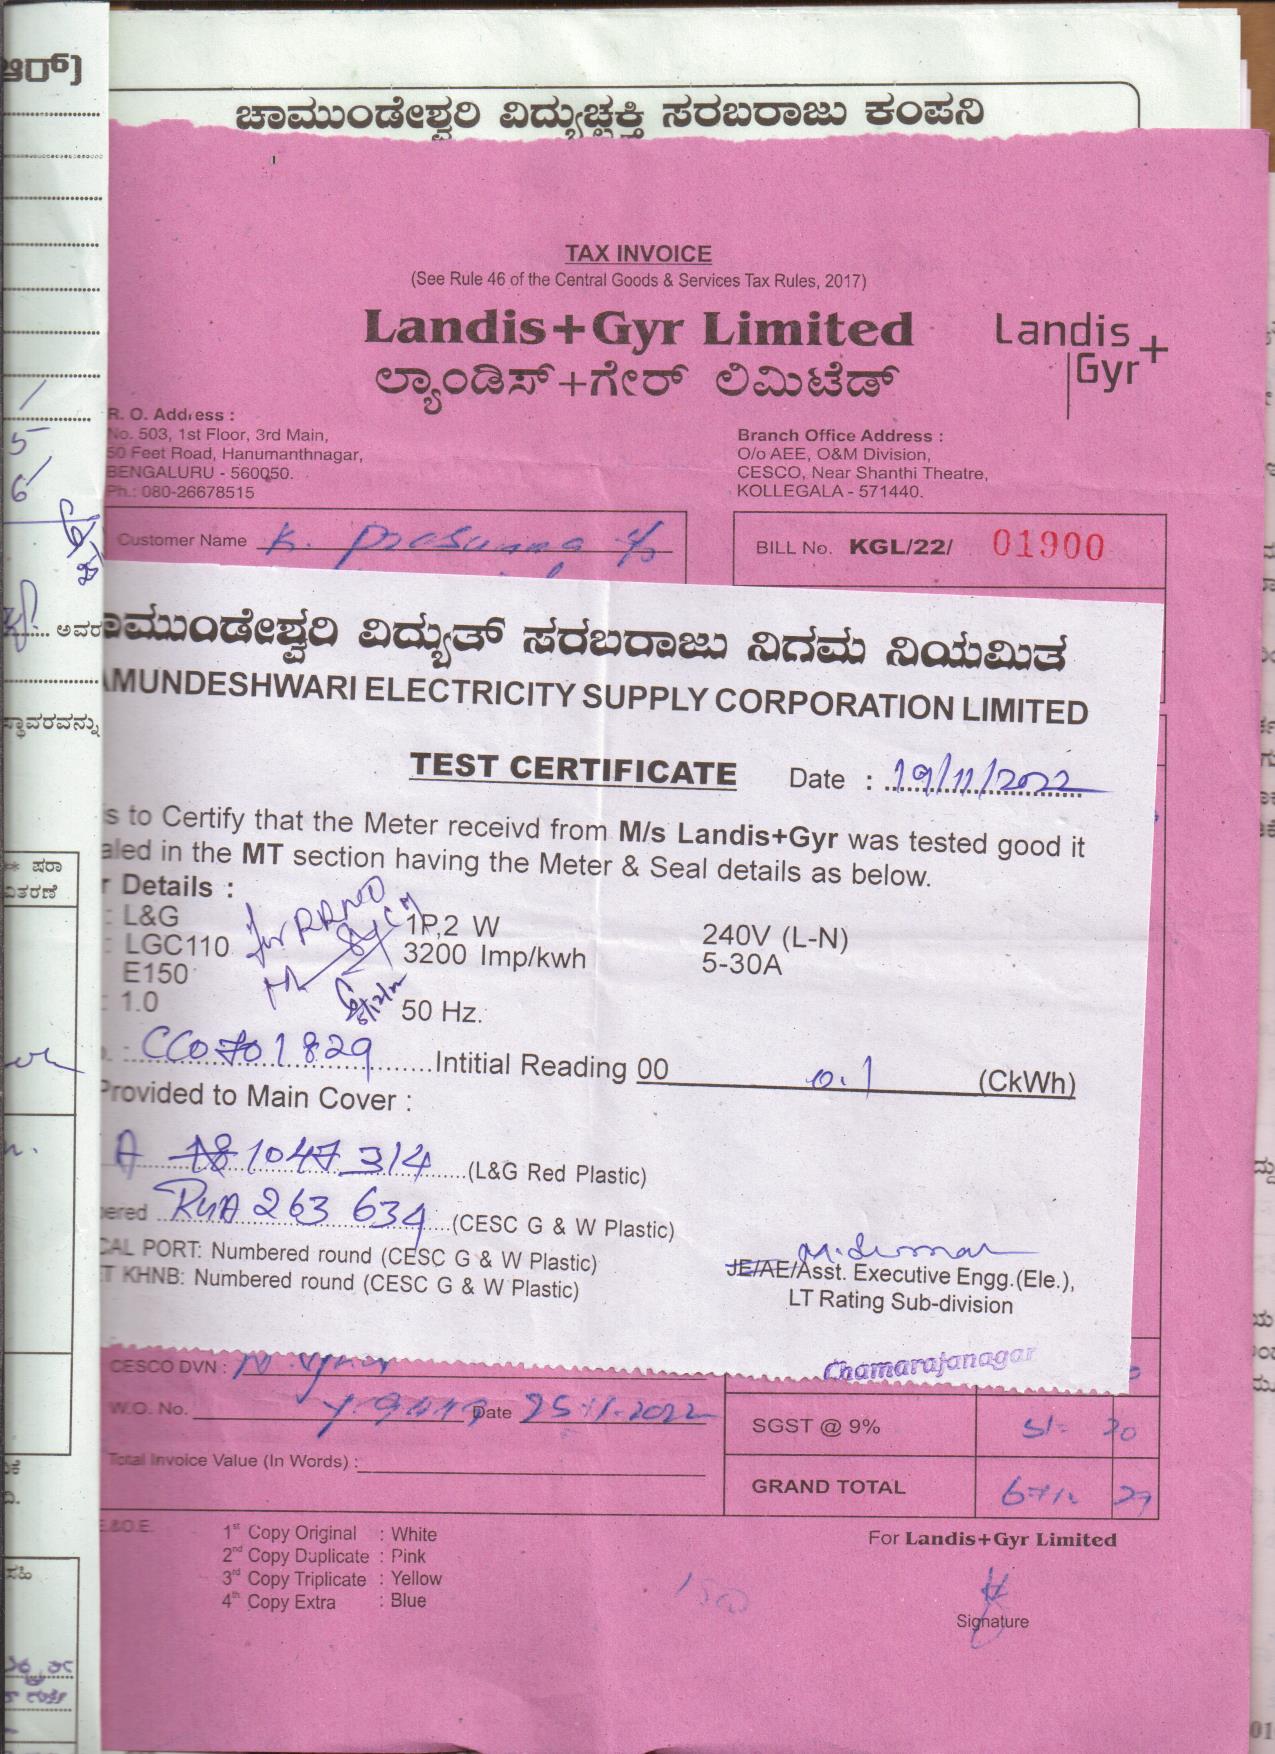 ಆರ್)
ಚಾಮುಂಡೇಶ್ವರಿ ವಿದ್ಯುಚ್ಛಕ್ತಿ ಸರಬರಾಜು ಕಂಪನಿ
TAX INVOICE
(See Rule 46 of the Central Goods & Services Tax Rules, 2017)
Landis+Gyr Limited
ಲ್ಯಾಂಡಿಸ್+ಗೇರ್ ಲಿಮಿಟೆಡ್
Landis+Gyr
R. O. Address :
No. 503, 1st Floor, 3rd Main,
50 Feet Road, Hanumanthnagar,
BENGALURU - 560050.
Ph.: 080-26678515
Branch Office Address :
O/o AEE, O&M Division,
CESCO, Near Shanthi Theatre,
KOLLEGALA - 571440.
Customer Name K. Prasunna
BILL No. KGL/22/ 01900
ಅವರ
ಾಮುಂಡೇಶ್ವರಿ ವಿದ್ಯುತ್ ಸರಬರಾಜು ನಿಗಮ ನಿಯಮಿತ
AMUNDESHWARI ELECTRICITY SUPPLY CORPORATION LIMITED
ಸ್ಥಾವರವನ್ನು
TEST CERTIFICATE Date : 19/11/2022
s to Certify that the Meter receivd from M/s Landis+Gyr was tested good it
aled in the MT section having the Meter & Seal details as below.
** ಷರಾ
ವಿತರಣೆ
r Details :
: L&G 1P,2 W 240V (L-N)
: LGC110 3200 Imp/kwh 5-30A
E150
: 1.0 50 Hz.
for RRNO
: CC0701829 Intitial Reading 00 0.1 (CkWh)
Provided to Main Cover :
A 181047314 (L&G Red Plastic)
ered RUA 263 634 (CESC G & W Plastic)
CAL PORT: Numbered round (CESC G & W Plastic)
T KHNB: Numbered round (CESC G & W Plastic)
JE/AE/Asst. Executive Engg.(Ele.),
LT Rating Sub-division
Chamarajanagar
CESCO DVN :
W.O. No. Date 25-11-2022
SGST @ 9% 51 20
Total Invoice Value (In Words) :
GRAND TOTAL 671 27
E.&O.E.
1st Copy Original : White
2nd Copy Duplicate : Pink
3rd Copy Triplicate : Yellow
4th Copy Extra : Blue
For Landis+Gyr Limited
ಸಹಿ
Signature